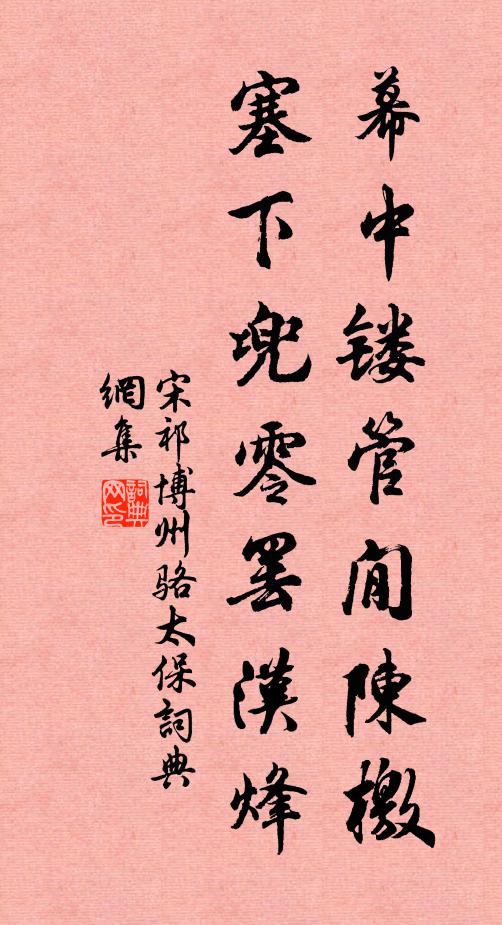 幕中镂管閒陳檄
塞下兜零罢漢烽
宋祁博州骆太保詞典
網集
詞典網印